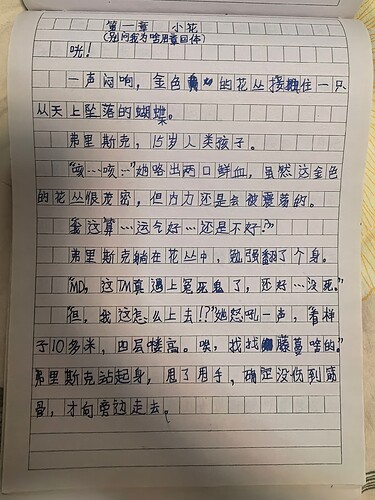 第一章 小花
(别问我为啥用章回体)
咣！
一声闷响，金色的花丛接住一只
从天上坠落的蝴蝶。
弗里斯克，15岁人类孩子。
“咳…咳…”她咯出两口鲜血，虽然这金色
的花丛很茂密，但内力还是会被震荡的。
“这算…运气好…还是不好？”
弗里斯克躺在花丛中，勉强翻了个身。
“MD，这TM真遇上冤死鬼了，还好…没死。”
“但，我这怎么上去！？”她怒吼一声，“看样
子10多米，四层楼高。唉，找找藤蔓啥的。”
弗里斯克站起身，甩了甩手，确定没伤到筋
骨，才向旁边走去。